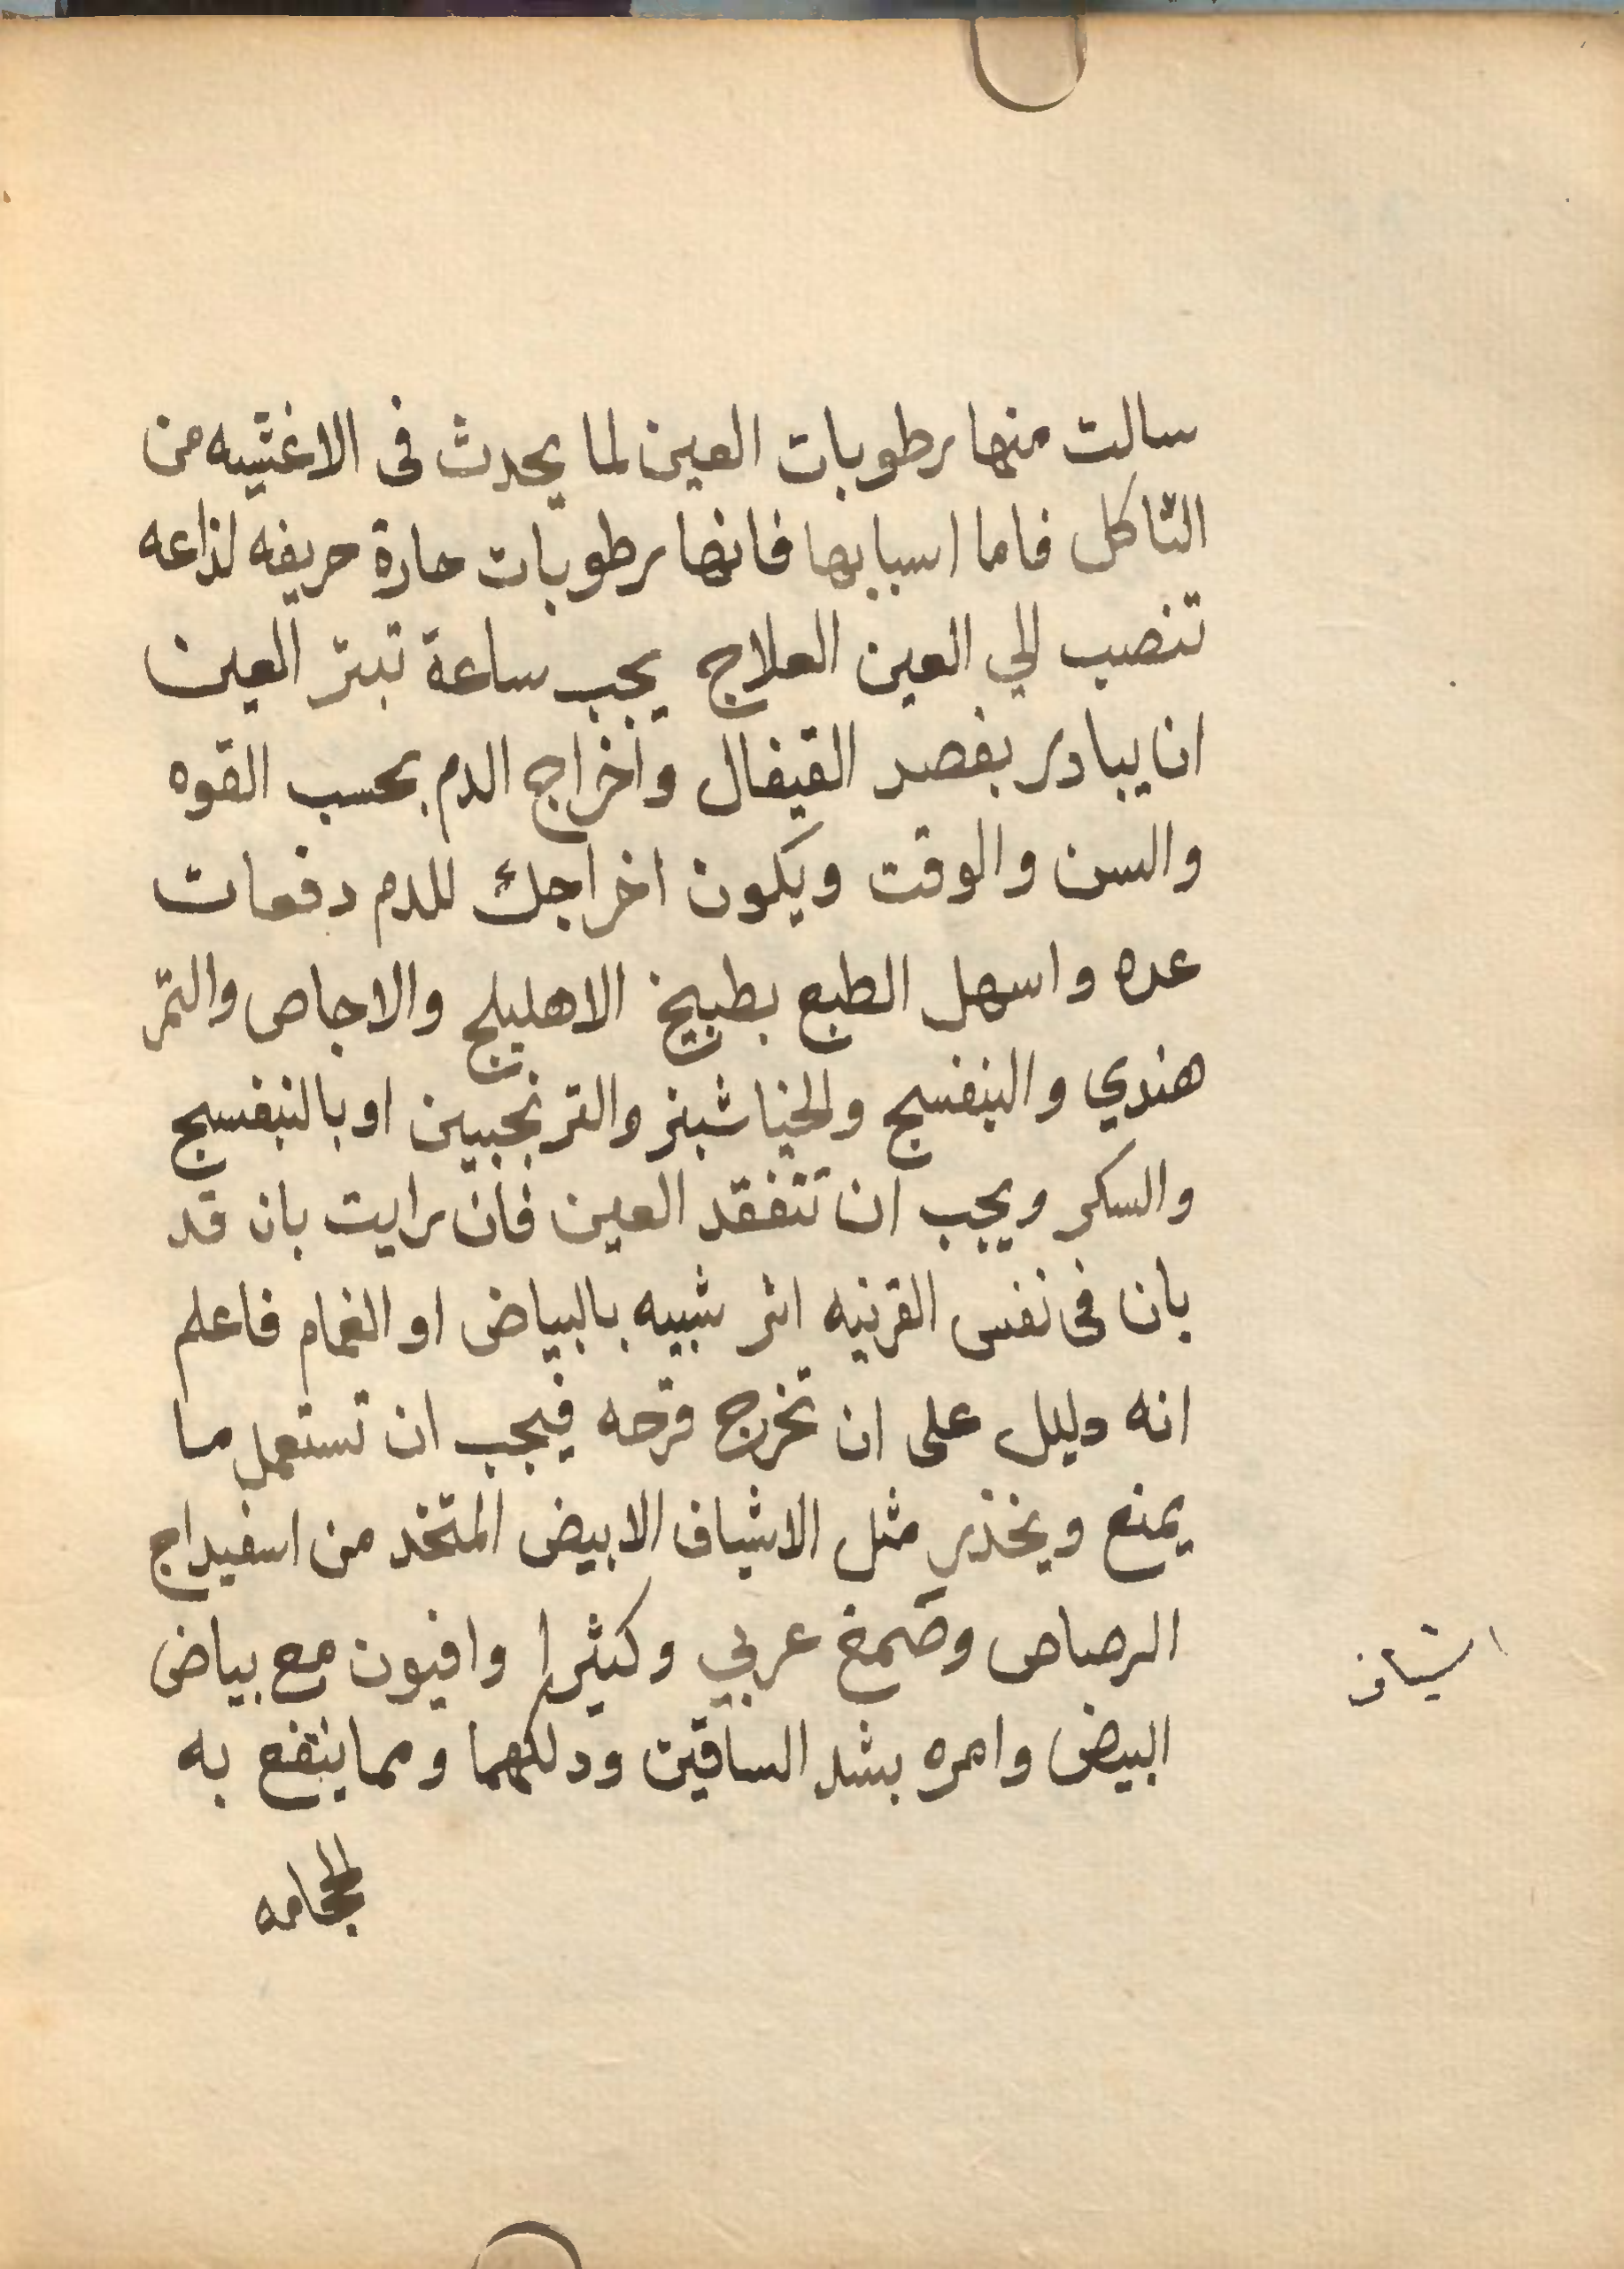 سالت منها رطوبات العين لما يحدث فى الاغشيه من
التاكل فاما اسبابها فانها رطوبات حارة حريفه لذاعه
تنصب الي العين العلاج يجب ساعة تبتر العين
ان يبادر بفصد القيفال واخراج الدم بحسب القوه
والسن والوقت ويكون اخراجك للدم دفعات
عده واسهل الطبع بطبيخ الاهليلج والاجاص والتمر
هندي والبنفسج والخياشنبر والترنجبين او بالبنفسج
والسكر ويجب ان تتفقد العين فان رايت بان قد
بان فى نفس القرنيه اثر شبيه بالبياض او الغمام فاعلم
انه دليل على ان تخرج قرحه فيجب ان تستعمل ما
يمنع ويخذر مثل الاشياف الابيض المتخد من اسفيداج
الرصاص وصمغ عربي وكثيرا وافيون مع بياض
البيض وامره بشد الساقين ودلكهما ومما ينتفع به
الحجامه
اشياف